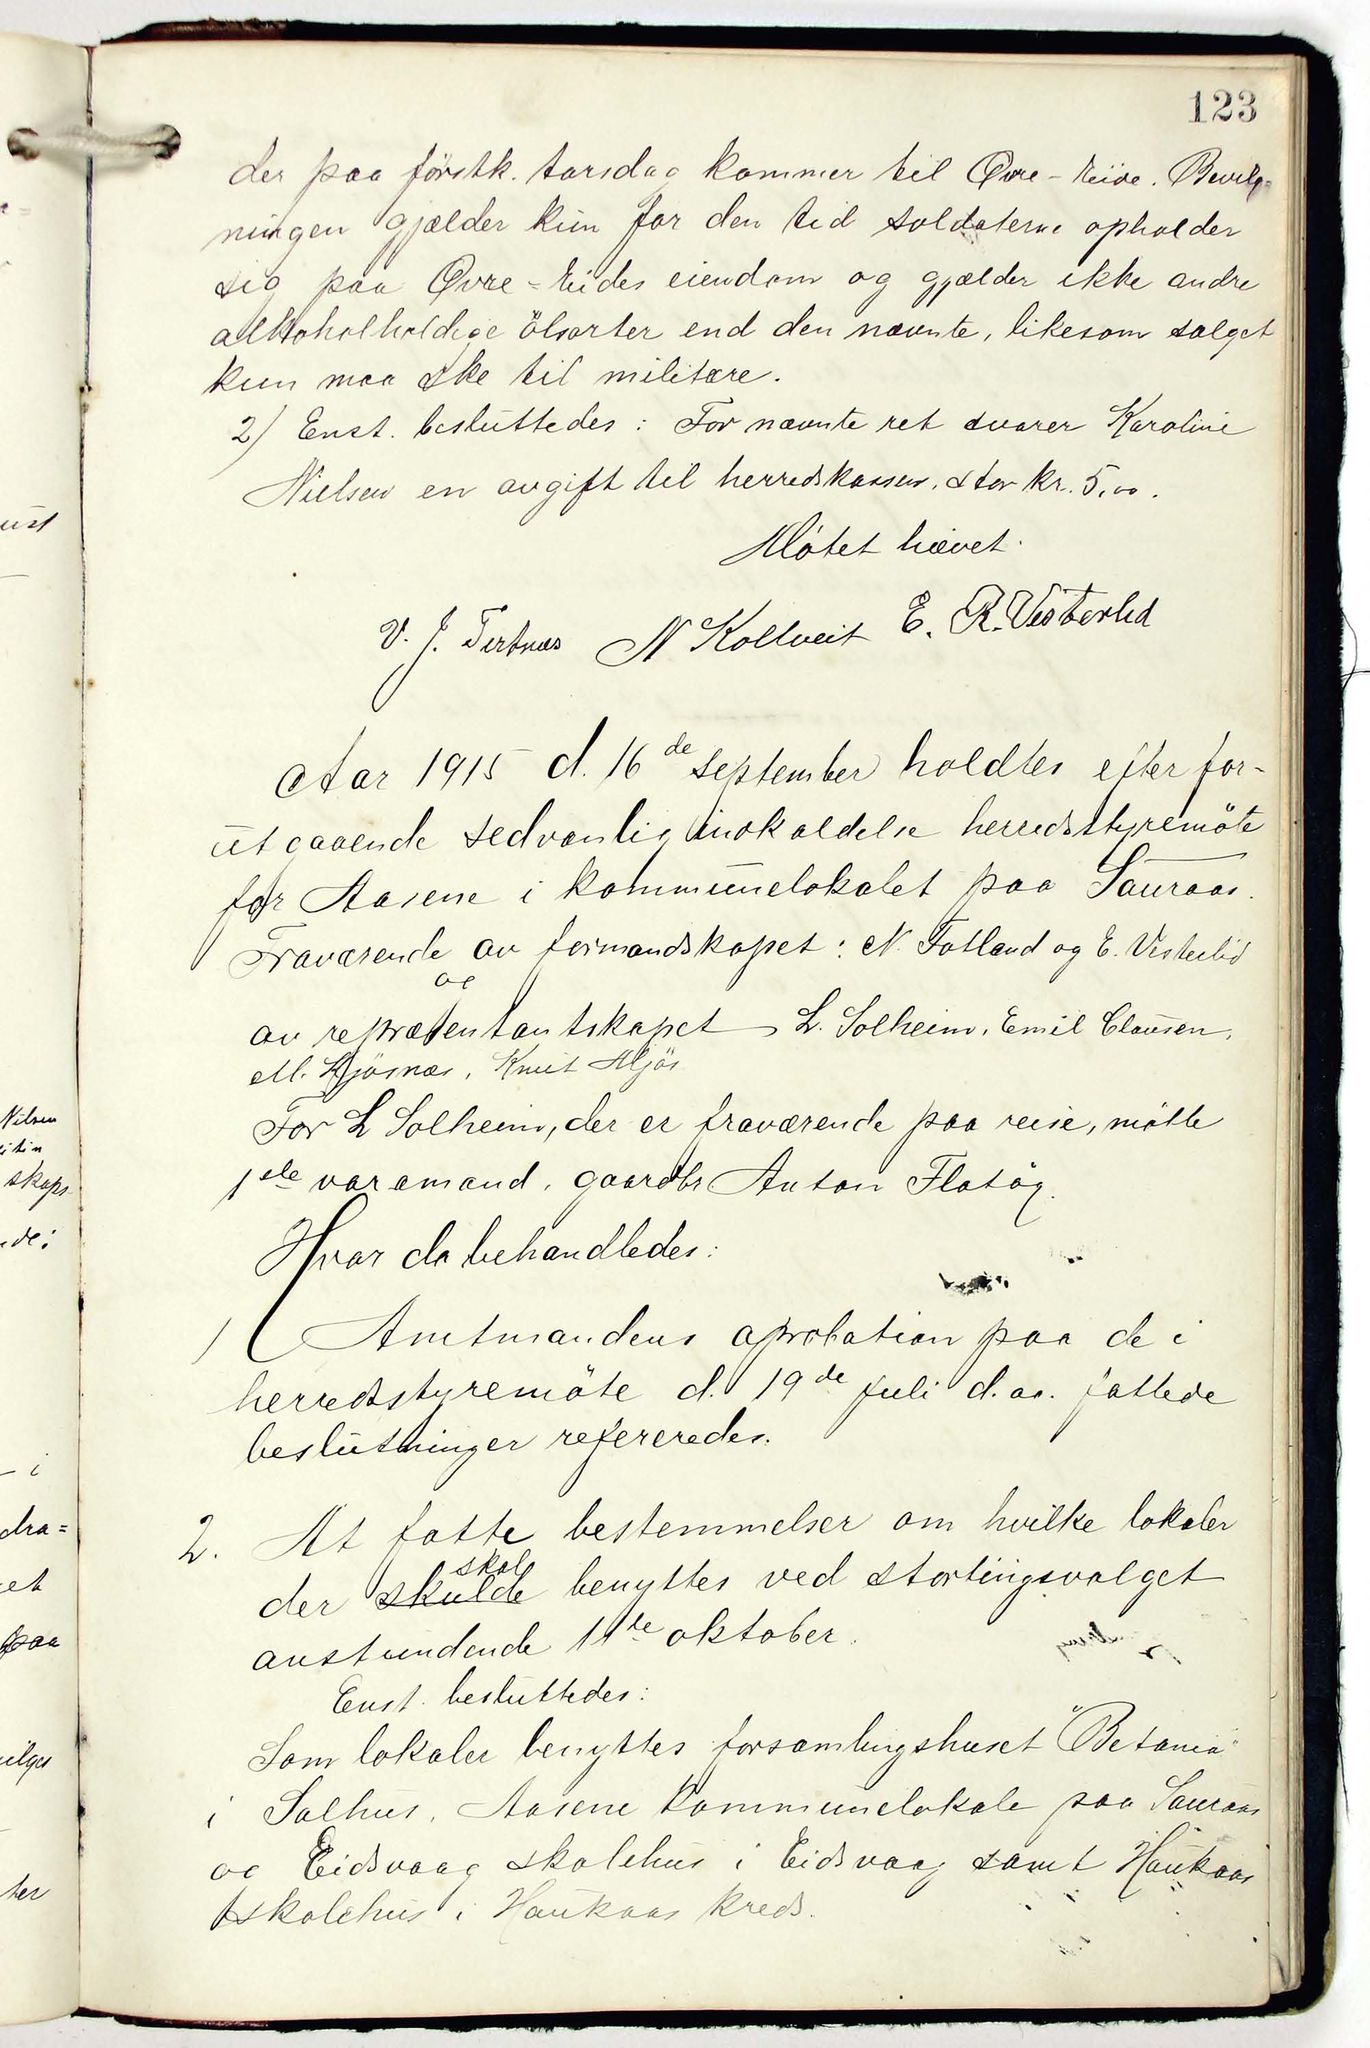 123
der paa førstk. torsdag kommer til Øvre-Eide. Bevilg=
ningen gjælder kun for den tid soldaterne opholder
sig paa Øvre-Eides eiendom og gjælder ikke andre
alkoholholdige ölsorter end den nævnte, likesom salget
kun maa ske til militære.
2) Enst. besluttedes: For nævnte ret svarer Karoline
Nielsen en avgift til herredskassen, stor kr. 5,00.
Mötet hævet.
V. J. Tertnæs N Kollveit E. R. Vesterlid
Aar 1915 d. 16de september holdtes efter for-
utgaaende sedvanlig indkaldelse herredsstyremöte
for Aasene i kommunelokalet paa Sauraas.
Fraværende av formandskapet: N. Totland og E. Vesterlid
og
av repræsentantskapet L. Solheim, Emil Clausen,
M. Kjösnæs, Knut Mjös
For L Solheim, der er fraværende paa reise, mötte
1ste varamand, gaardbr Anton Flatöy.
Hvor da behandledes:
1) Amtmandens aprobation paa de i
herredsstyremöte d. 19de juli d. aa. fattede
beslutninger refereredes.
2. At fatte bestemmelser om hvilke lokaler
skal
der skulde benyttes ved stortingsvalget
anstundende 11te oktober.
Enst. besluttedes:
Som lokaler benyttes forsamlingshuset "Betania"
i Salhus, Aasene kommunelokale paa Sauraas
og Eidsvaag skolehus i Eidsvaag samt Haukaas
skolehus i Haukaas kreds.
ust
Nilsen
skaps
de:
i
dra=
et
paa
ilges
ter